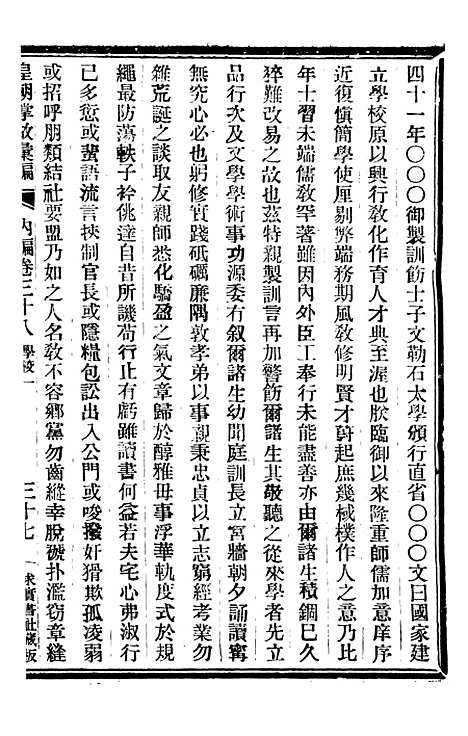 四十一年〇〇〇御製訓飭士子文勒石太學頒行直省〇〇〇文曰國家建
立學校原以興行敎化作育人才典至渥也朕臨御以來隆重師儒加意庠序
近復愼簡學使厘剔弊端務期風敎修明賢才蔚起庶幾棫樸作人之意乃比
年士習未端儒敎罕著雖因內外臣工奉行未能盡善亦由爾諸生積錮已久
猝難改易之故也兹特親製訓言再加警飭爾諸生其敬聽之從來學者先立
品行次及文學學術事功源委有叙爾諸生幼聞庭訓長立宮牆朝夕誦讀寗
無究心必也躬修實踐砥礪廉隅敦孝弟以事親秉忠貞以立志窮經考業勿
雜荒誕之談取友親師悉化驕盈之氣文章歸於醇雅毋事浮華軌度式於規
繩最防蕩軼子衿佻達自昔所譏苟行止有虧雖讀書何益若夫宅心弗淑行
已多愆或蜚語流言挾制官長或隱糧包訟出入公門或唆撥奸猾欺孤淩弱
或招呼朋類結社要盟乃如之人名敎不容鄉黨勿齒縱幸脫褫扑濫窃章縫
皇朝掌故彙編 內編卷三十八 學校一 三十七 求實書社藏板